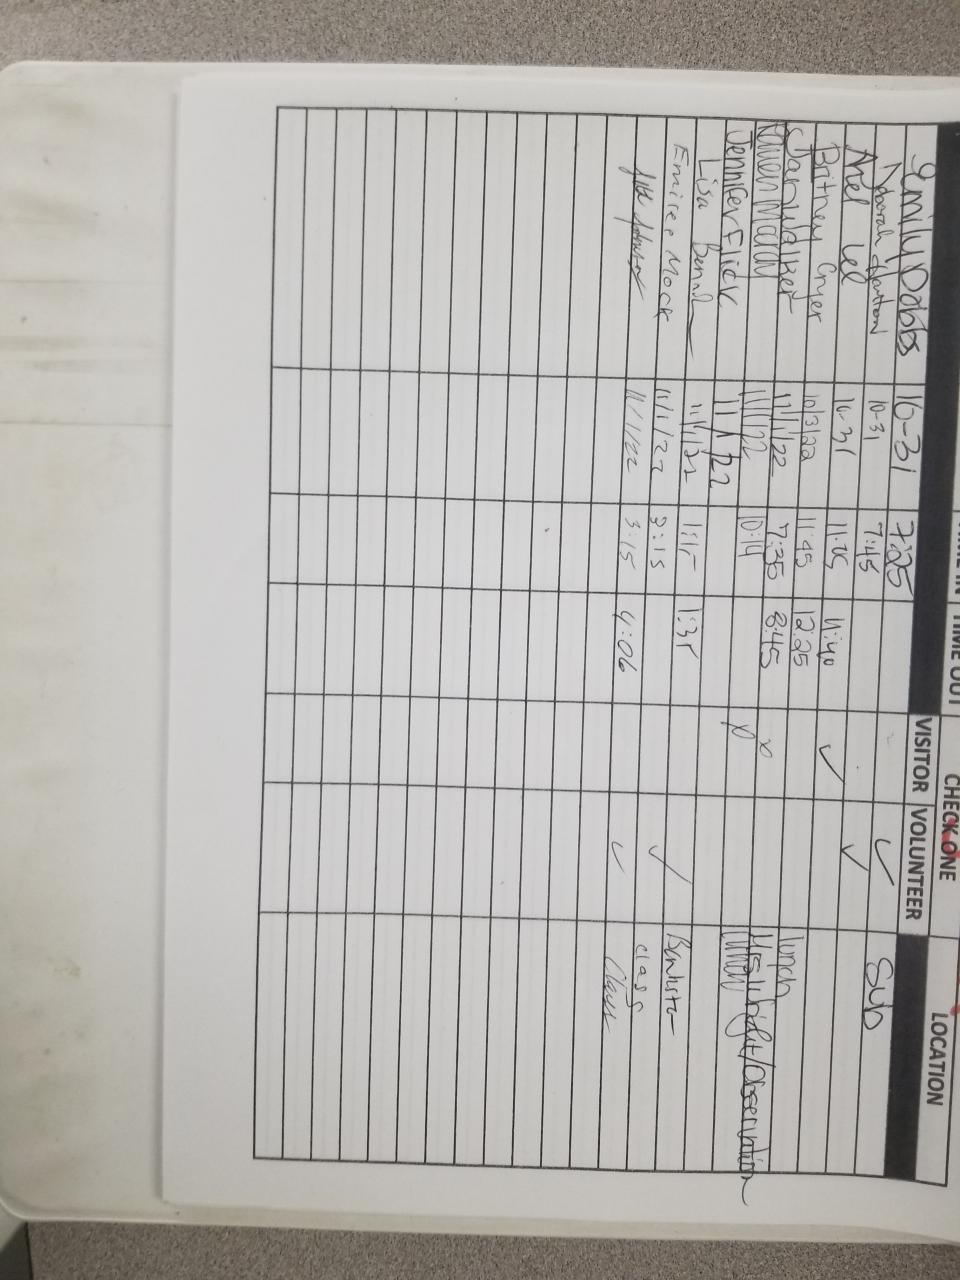 TIME IN TIME OUT CHECK ONE LOCATION
VISITOR VOLUNTEER
Emily Dobbs 10-31 7:25
Deborah 10-31 7:45 ✓ Sub
Ariel Lee 10-31 11:05 11:40 ✓
Britney Cryer 10/3/22 11:45 12:25 ✓
Walker 11/1/22 7:35 8:45 lunch
11/1/22 10:14 x /Observation
Jennifer Flick 11/1/22 x lunch
Lisa 11/1/22 1:15 1:35
Emilee Mock 11/1/22 3:15 ✓ class
11/1/22 3:15 4:06 ✓ class